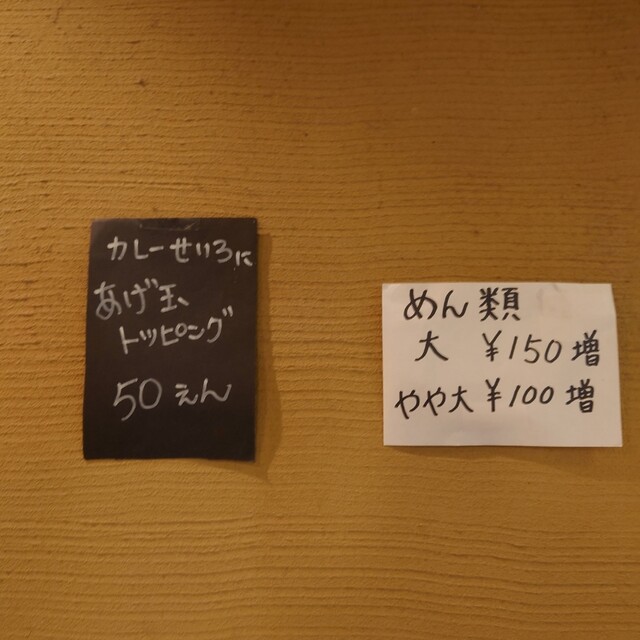 カレーせいろに
あげ玉、
トッピング
50えん
めん類
大 ¥150増
やや大 ¥100増